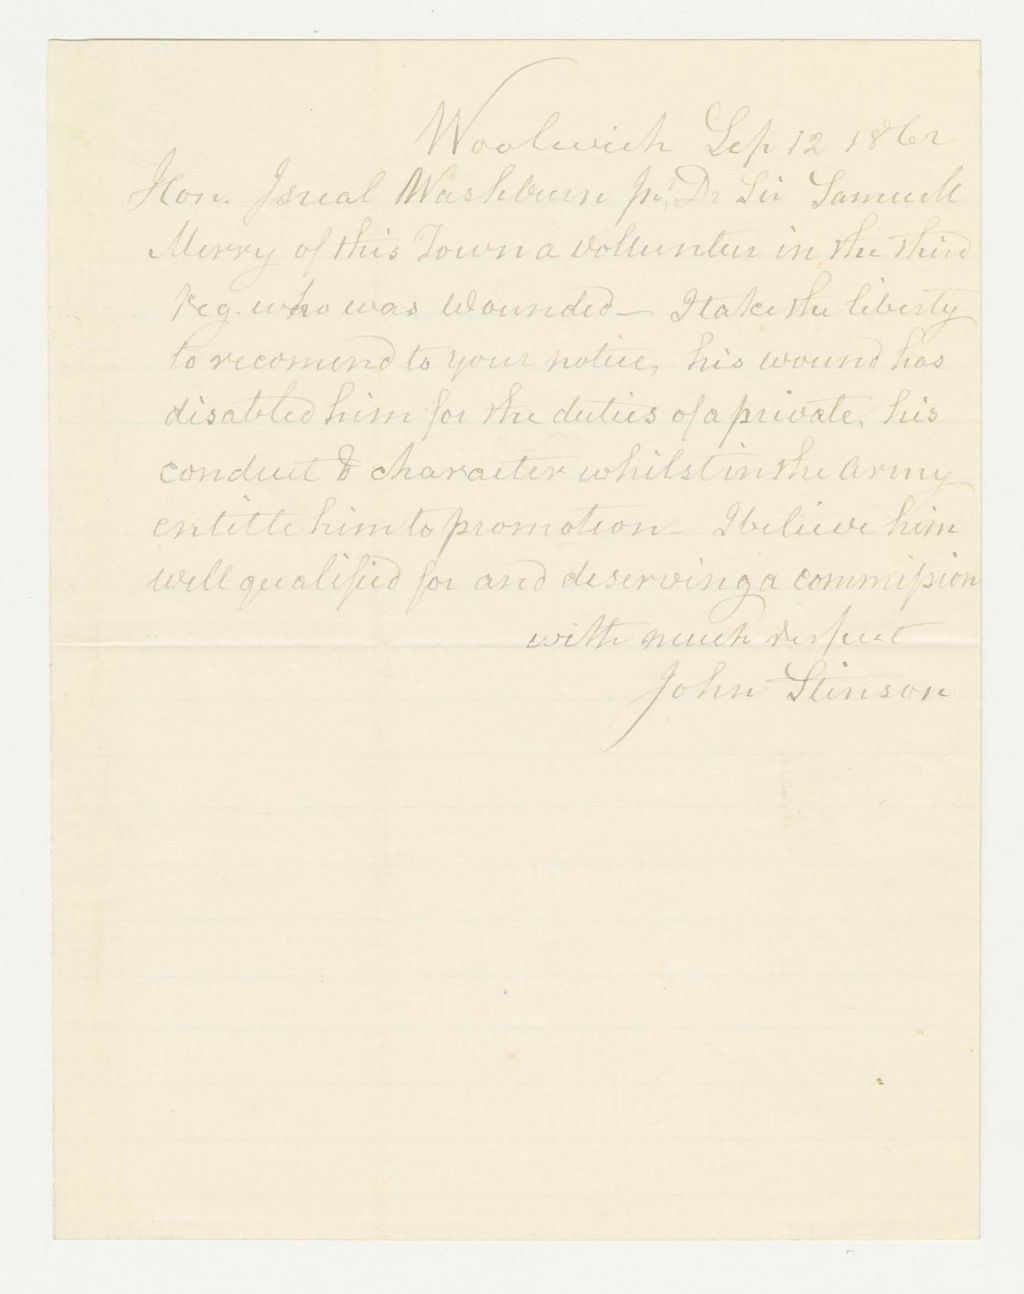 Woolwich Sep 12 1862
Hon. Isreal Washburn jr, Dr Sir Samuell
Merry of this Town a vollunteer in the third
Reg. who was wounded — I take the liberty
to recomend to your notice, his wound has
disabled him for the duties of a private, his
conduct & character whilst in the army
entitle him to promotion — I believe him
well qualified for and deserving a commission
with much respect
John Stinson